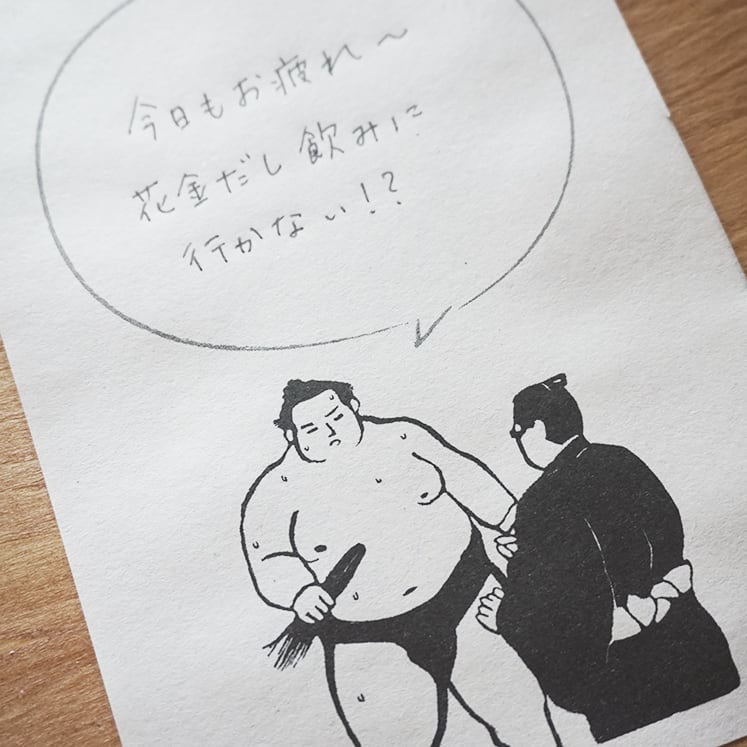 今日もお疲れ〜
花金だし飲みに
行かない!?